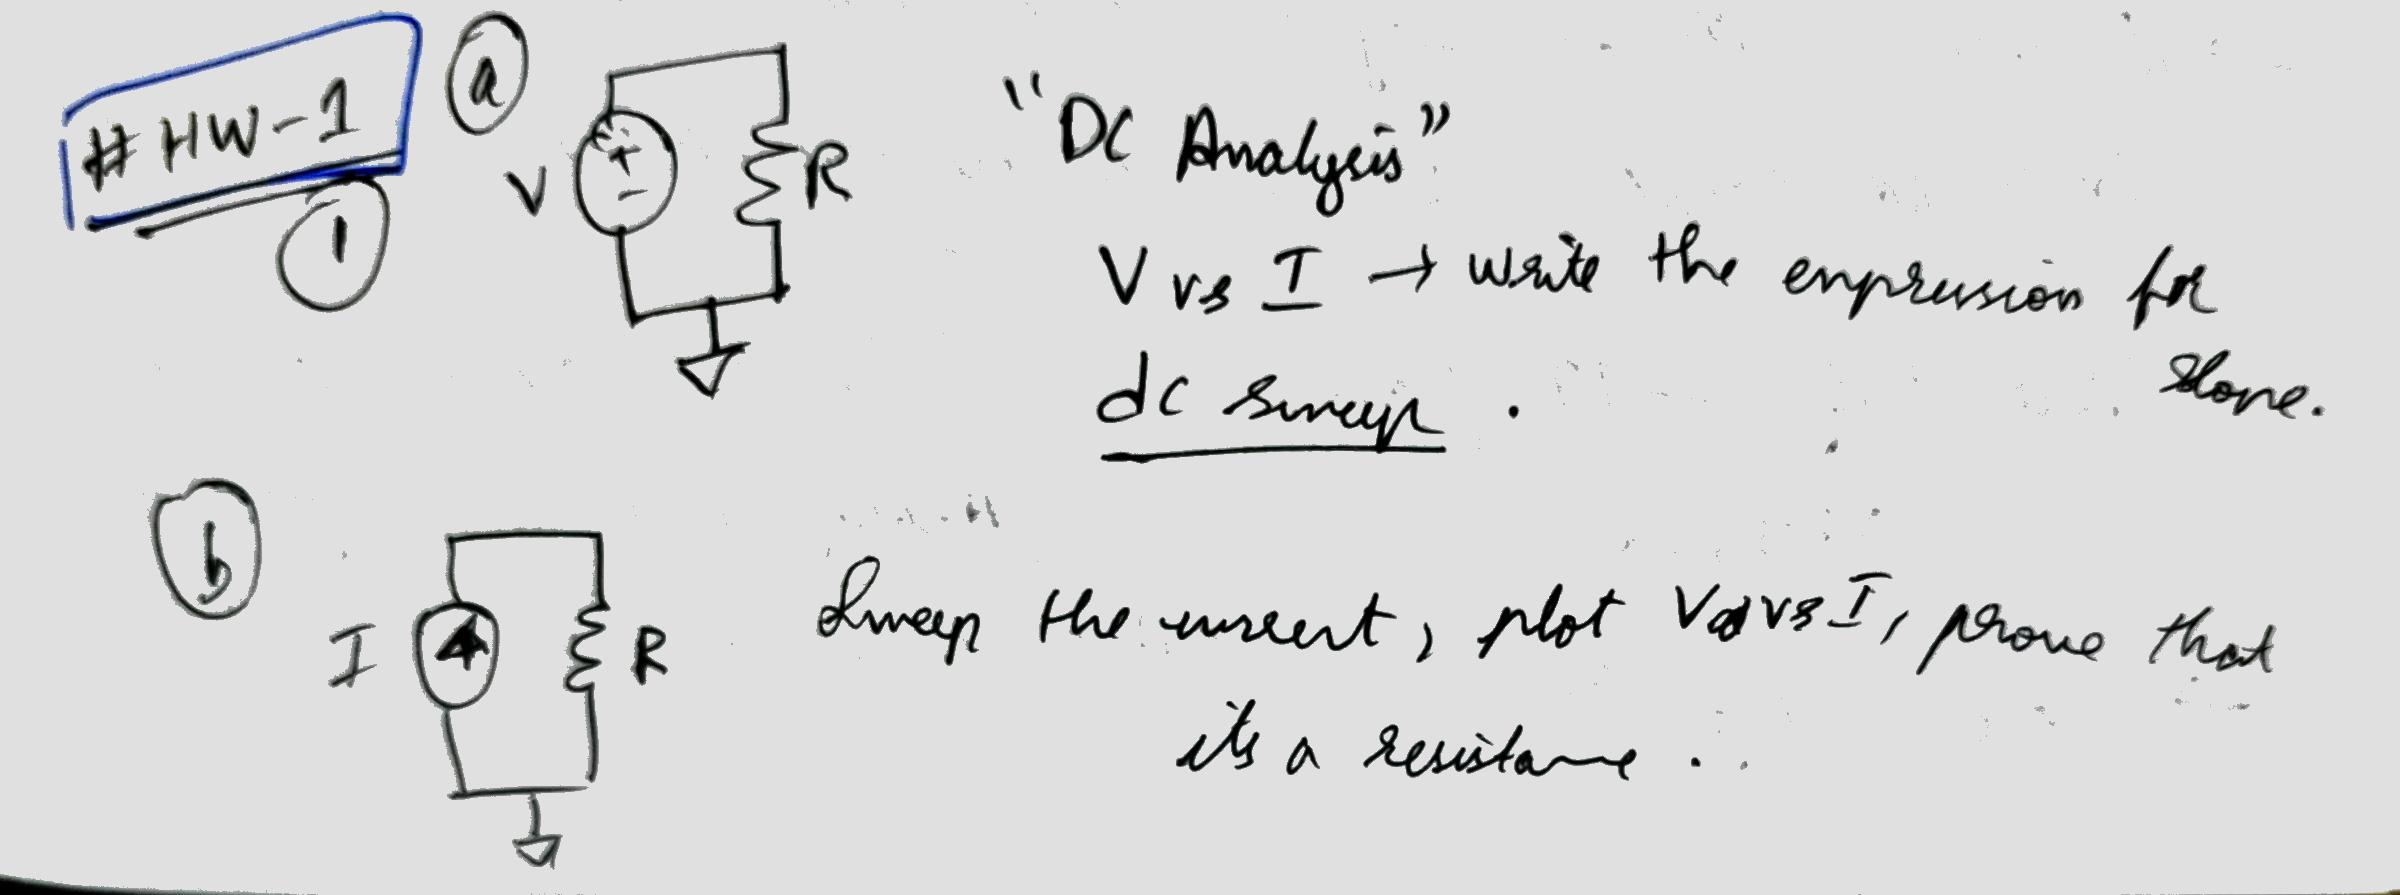 # HW-1
1
a
V
+
-
R
"DC Analysis"
V vs I → write the expression for
slope.
dc sweep .
b
I
R
Sweep the current, plot V vs I, prove that
its a resistance .